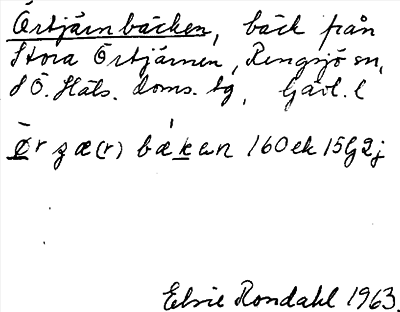 Örtjärnbäcken, bäck från
Stora Örtjärnen, Rengsjö sn,
SÖ. Häls. doms. tg, Gävl. l
Ør zæ(r) bækan 160ek 15G2j
Elsie Rondahl 1963.